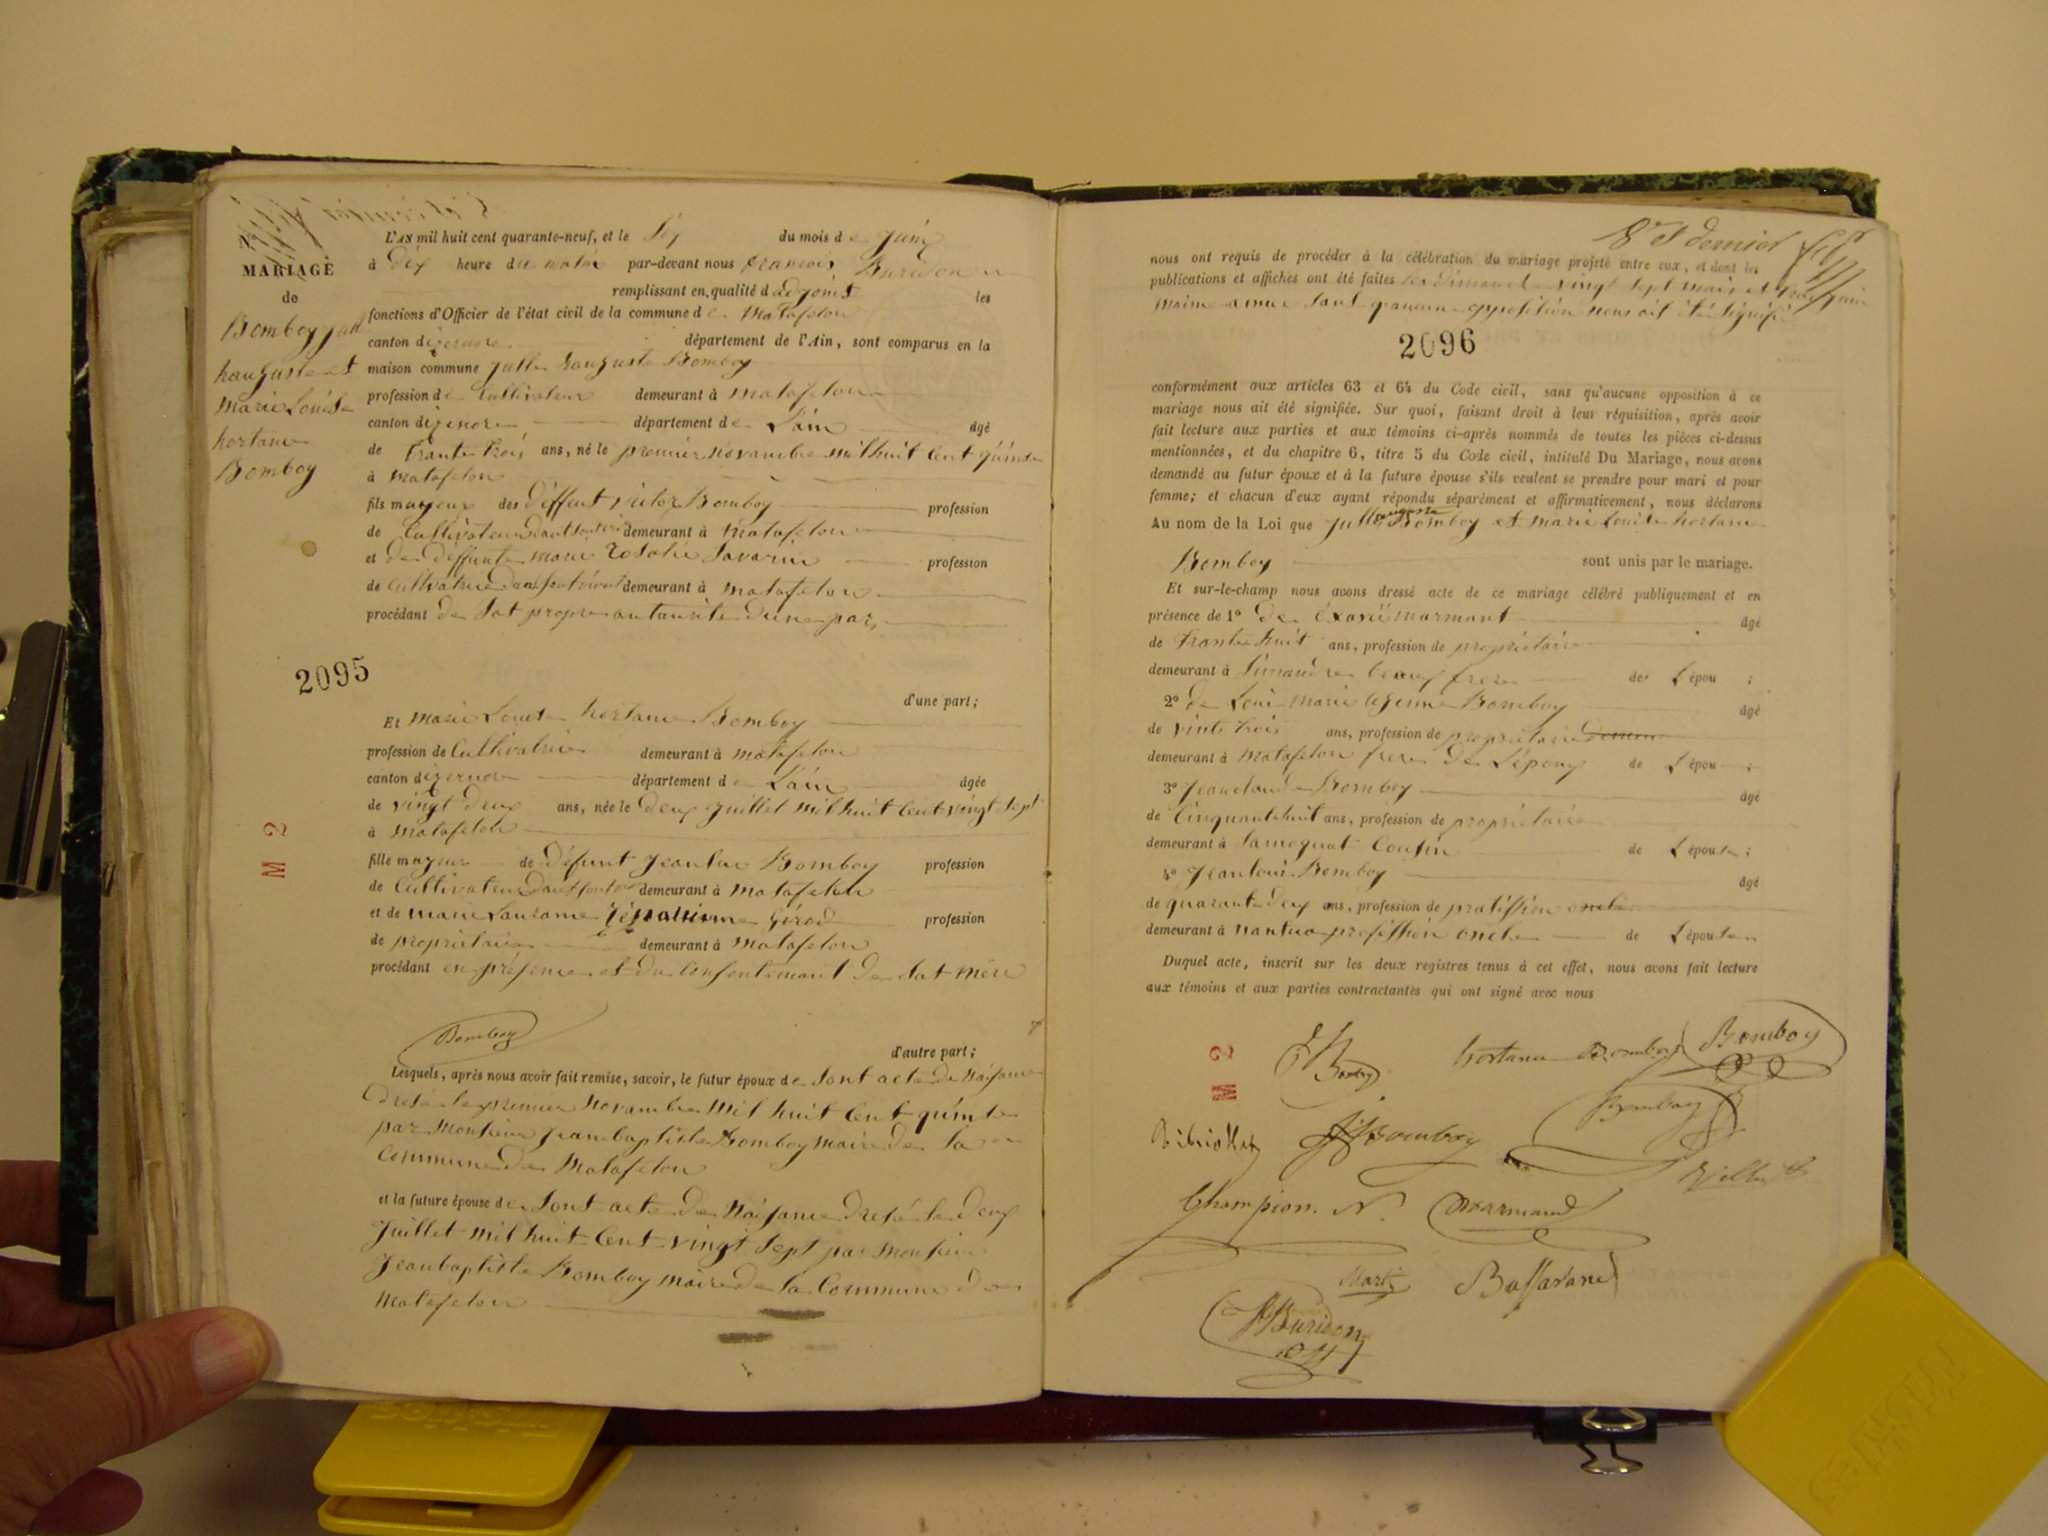 N.
MARIAGE
de
Bomboy jull
hauguste et
Marie Louise
hortance
Bomboy
2095
M 2
L'AN mil huit cent quarante-neuf, et le Six du mois de Juin
à dix heure du matin par-devant nous francois Buridon
remplissant en qualité d adjoint les
fonctions d'Officier de l'état civil de la commune de Matafelon
canton dizernore département de l'Ain, sont comparus en la
maison commune Julle hauguste Bomboy
profession de Cultivateur demeurant à matafelon
canton dizernore département de L'ain âgé
de trante trois ans, né le premier novambre mil huit cent quinse
à matafelon
fils mageur des deffunt victor Bomboy profession
de Cultivateur demeurant à matafelon
et de deffunte marie Rosalie Savarin profession
de Cultivatrice demeurant à matafelon
procédant de sat propre autaurité dune par
d'une part;
Et marie Louise hortance Bomboy
profession de Cultivatrice demeurant à matafelon
canton dizernore département de L'ain âgée
de vingt deux ans, née le deux juillet mil huit cent vingt sept
à matafelon
fille mageur de défunt jeanluc Bomboy profession
de Cultivateur demeurant à matafelon
et de marie Girod profession
de propriétaire demeurant à matafelon
procédant en présence et du consentement de sat mère
Bomboy
d'autre part;
Lesquels, après nous avoir fait remise, savoir, le futur époux de sont acte de naisance
dresé le premier novambre mil huit cent quinse
par monsieur jeanbaptiste Bomboy maire de la
Commune de Matafelon
et la future épouse de sont acte de naisance dresé le deux
Juillet mil huit cent vingt sept par monsieur
Jeanbaptiste Bomboy maire de la Commune de
Matafelon
8e et dernier
nous ont requis de procéder à la célébration du mariage projeté entre eux, et dont les
publications et affiches ont été faites les dimanche vingt sept mais et trois juin
maime anné sans quaucun opposition nous ait été signifié
2096
conformément aux articles 63 et 64 du Code civil, sans qu'aucune opposition à ce
mariage nous ait été signifiée. Sur quoi, faisant droit à leur réquisition, après avoir
fait lecture aux parties et aux témoins ci-après nommés de toutes les pièces ci-dessus
mentionnées, et du chapitre 6, titre 5 du Code civil, intitulé Du Mariage, nous avons
demandé au futur époux et à la future épouse s'ils veulent se prendre pour mari et pour
femme; et chacun d'eux ayant répondu séparément et affirmativement, nous déclarons
Au nom de la Loi que Julle auguste Bomboy et marie Louise hortance
Bomboy sont unis par le mariage.
Et sur-le-champ nous avons dressé acte de ce mariage célébré publiquement et en
présence de 1° de marmont âgé
de trante huit ans, profession de propriétaire
demeurant à Simandre beaux frere de L'épou ;
2° de Loui marie Bomboy âgé
de vints trois ans, profession de propriétaire
demeurant à Matafelon frere de L'époux de L'épou ;
3° Jeanclaude Bomboy âgé
de Cinquante huit ans, profession de propriétaire
demeurant à Samognat Cousin de L'épouse ;
4° Jeanloui Bomboy âgé
de quarante deux ans, profession de
demeurant à nantua oncle de L'épouse
Duquel acte, inscrit sur les deux registres tenus à cet effet, nous avons fait lecture
aux témoins et aux parties contractantes qui ont signé avec nous
Bomboy hortance Bomboy Bomboy
Bomboy Bomboy
Champion. N. Marmand
Buridon
M 2